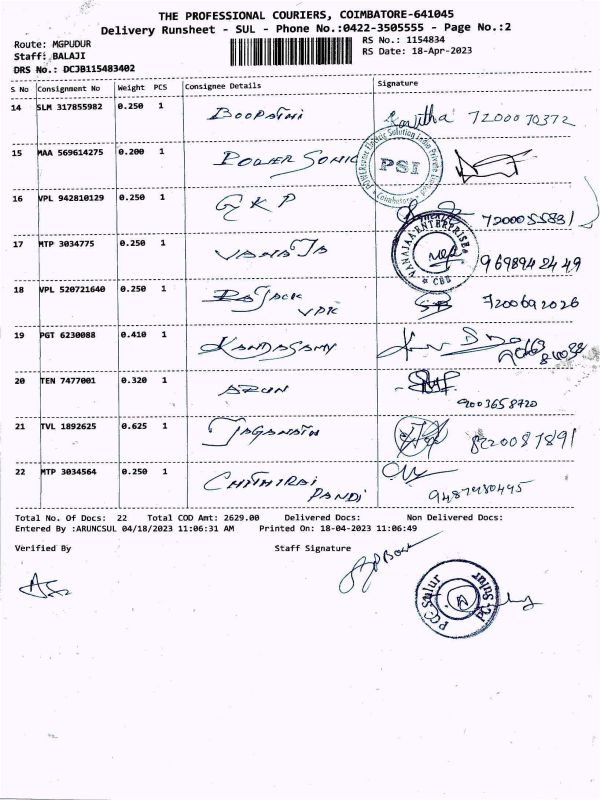 THE PROFESSIONAL COURIERS, COIMBATORE-641045
Delivery Runsheet - SUL - Phone No.:0422-3505555 - Page No.:2
Route: MGPUDUR
RS No.: 1154834
Staff: BALAJI
RS Date: 18-Apr-2023
DRS No.: DCJB115483402
S No Consignment No Weight PCS Consignee Details Signature
14 SLM 317855982 0.250 1 BOOPATHI Kavitha 7200070372
15 MAA 569614275 0.200 1 POWER SONIC
PSI
Coimbatore
16 VPL 942810129 0.250 1 GKP
17 MTP 3034775 0.250 1 VANAJA 9698942449
VANAJAA ENTERPRISES
CBE
18 VPL 520721640 0.250 1 7200692026
19 PGT 6230088 0.410 1 KANDASAMY
20 TEN 7477001 0.320 1 ARUN
9003658720
21 TVL 1892625 0.625 1 JAGANATH 8220087891
22 MTP 3034564 0.250 1 CHITHIRAI
PANDI
Total No. Of Docs: 22 Total COD Amt: 2629.00 Delivered Docs: Non Delivered Docs:
Entered By :ARUNCSUL 04/18/2023 11:06:31 AM Printed On: 18-04-2023 11:06:49
Verified By Staff Signature
PCC Sulur